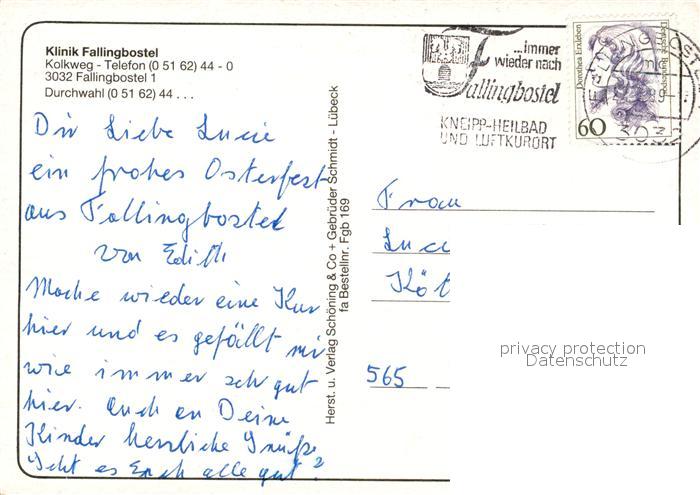 Klinik Fallingbostel
Kolkweg - Telefon (0 51 62) 44 - 0
3032 Fallingbostel 1
Durchwahl (0 51 62) 44 . . .
...immer
wieder nach
Fallingbostel
KNEIPP-HEILBAD
UND LUFTKURORT
Dorothea Erxleben
Deutsche Bundespost
60
3032
Dir Liebe Lucie
ein frohes Osterfest
aus Fallingbostel
von Edith
Mache wieder eine Kur
hier und es gefällt mir
wie immer sehr gut
hier. Auch an Deine
Kinder herzliche Grüße
Geht es Euch alle gut?
Herst. u. Verlag Schöning & Co + Gebrüder Schmidt - Lübeck
fa Bestellnr. Fgb 169
Frau
Luc
Köt
565
privacy protection
Datenschutz